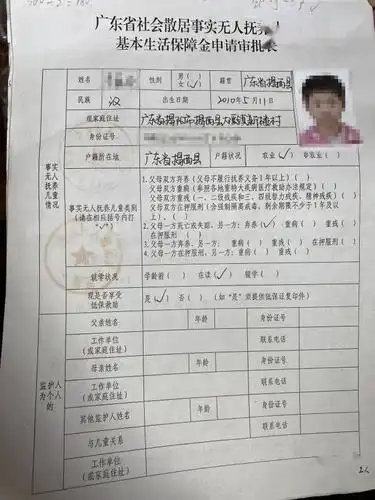 广东省社会散居事实无人抚养
基本生活保障金申请审批表
姓名 性别 男( ) 女(✓) 籍贯 广东省揭西县
民族 汉 出生日期 2010年5月11日
现家庭住址
身份证号
户籍所在地 广东省揭西县 户籍状况 农业(✓) 非农业( )
事实无人抚养儿童情况
事实无人抚养儿童类别(请在相应括号内打“✓”)
1.父母双方弃养(父母不履行抚养义务1年以上)( )
父母双方重病(参照各地重特大疾病医疗救助办法规定)( )
父母双方重残(一、二级残疾和三、四级智力残疾、精神残疾)( )
父母双方在押服刑(含强制隔离戒毒,剩余期限不少于1年及以上)、( )
2.父母一方死亡或失踪,另一方:弃养(✓) 重病( ) 重残( )
在押服刑( )
3.父母一方弃养,另一方: 重病( ) 重残( ) 在押服刑( )
4.父母一方在押服刑,另一方:重病( ) 重残( )
就学状况 学龄前( ) 在读(✓) 辍学( )
现是否享受低保救助 是(✓) 否( ) (如“是”须提供低保证复印件)
监护人为个人的
父亲姓名 年龄 身份证号
工作单位(或家庭住址) 联系电话
母亲姓名 年龄 身份证号
工作单位(或家庭住址) 联系电话
其他监护人姓名 年龄 身份证号
与儿童关系 联系电话
工作单位(或家庭住址)